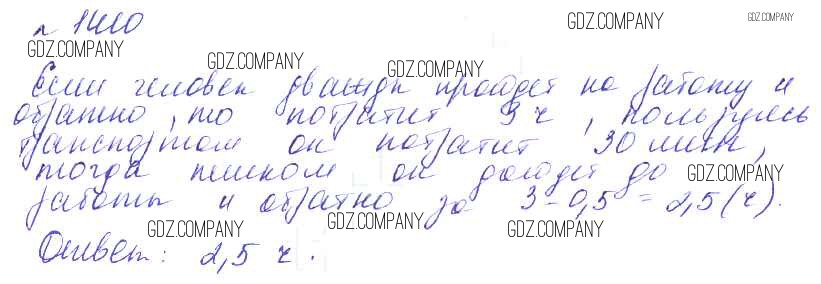 № 1410
GDZ.COMPANY GDZ.COMPANY
GDZ.COMPANY GDZ.COMPANY GDZ.COMPANY
Если человек дважды пройдет на работу и
обратно, то потратит 3 ч, пользуясь
транспортом он потратит 30 мин,
тогда пешком он дойдет до GDZ.COMPANY
работы и обратно за 3 - 0,5 = 2,5 (ч).
GDZ.COMPANY GDZ.COMPANY GDZ.COMPANY
Ответ: 2,5 ч.